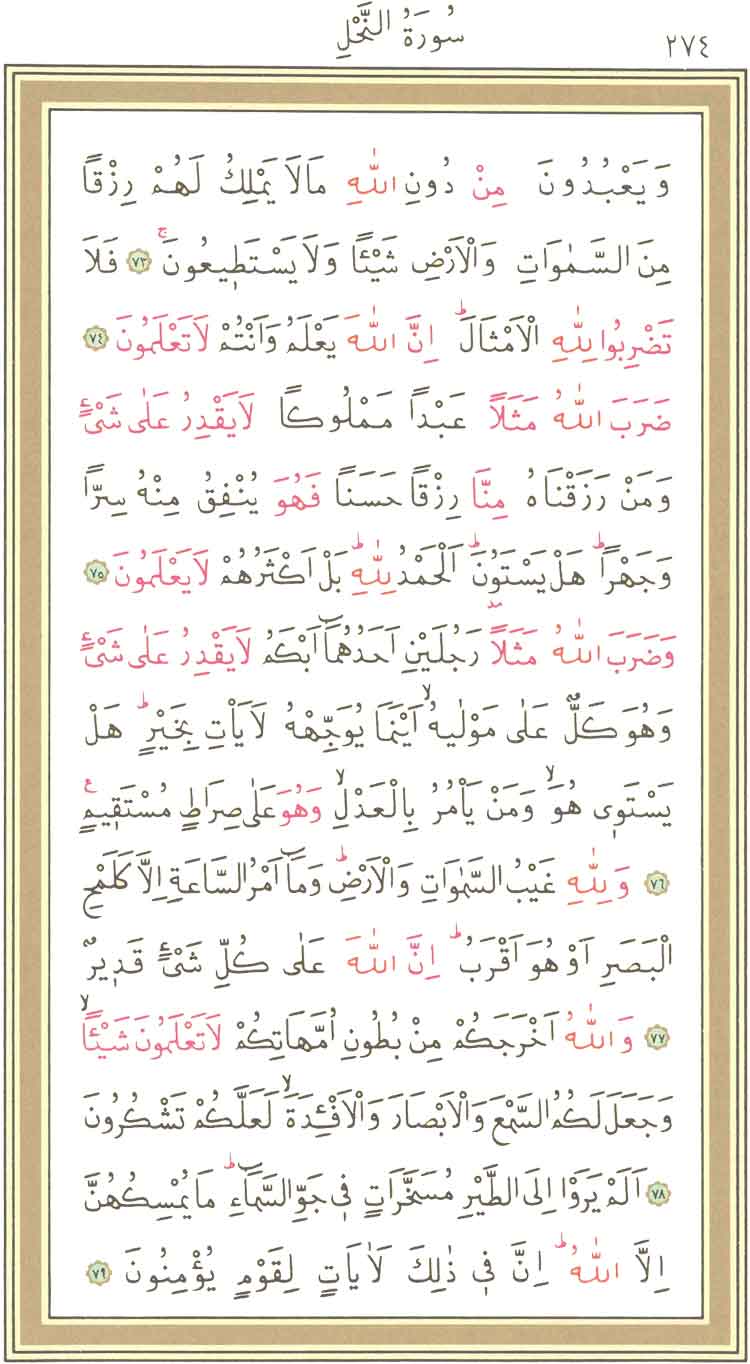 ٢٧٤
سُورَةُ النَّحْلِ
وَيَعْبُدُونَ مِنْ دُونِ اللّٰهِ مَالَا يَمْلِكُ لَهُمْ رِزْقًا
مِنَ السَّمٰوَاتِ وَالْاَرْضِ شَيْـًٔا وَلَا يَسْتَط۪يعُونَۚ ﴿٧٣﴾ فَلَا
تَضْرِبُوا لِلّٰهِ الْاَمْثَالَۜ اِنَّ اللّٰهَ يَعْلَمُ وَاَنْتُمْ لَا تَعْلَمُونَ ﴿٧٤﴾
ضَرَبَ اللّٰهُ مَثَلًا عَبْدًا مَمْلُوكًا لَا يَقْدِرُ عَلٰى شَيْءٍ
وَمَنْ رَزَقْنَاهُ مِنَّا رِزْقًا حَسَنًا فَهُوَ يُنْفِقُ مِنْهُ سِرًّا
وَجَهْرًاۜ هَلْ يَسْتَوُ۫نَۜ اَلْحَمْدُ لِلّٰهِۜ بَلْ اَكْثَرُهُمْ لَا يَعْلَمُونَ ﴿٧٥﴾
وَضَرَبَ اللّٰهُ مَثَلًا رَجُلَيْنِ اَحَدُهُمَٓا اَبْكَمُ لَا يَقْدِرُ عَلٰى شَيْءٍ
وَهُوَ كَلٌّ عَلٰى مَوْلٰيهُۙ اَيْنَمَا يُوَجِّهْهُ لَا يَأْتِ بِخَيْرٍۜ هَلْ
يَسْتَو۪ي هُوَۙ وَمَنْ يَأْمُرُ بِالْعَدْلِۙ وَهُوَ عَلٰى صِرَاطٍ مُسْتَق۪يمٍ۟
﴿٧٦﴾ وَلِلّٰهِ غَيْبُ السَّمٰوَاتِ وَالْاَرْضِۜ وَمَٓا اَمْرُ السَّاعَةِ اِلَّا كَلَمْحِ
الْبَصَرِ اَوْ هُوَ اَقْرَبُۜ اِنَّ اللّٰهَ عَلٰى كُلِّ شَيْءٍ قَد۪يرٌ
﴿٧٧﴾ وَاللّٰهُ اَخْرَجَكُمْ مِنْ بُطُونِ اُمَّهَاتِكُمْ لَا تَعْلَمُونَ شَيْـًٔاۙ
وَجَعَلَ لَكُمُ السَّمْعَ وَالْاَبْصَارَ وَالْاَفْـِٔدَةَۙ لَعَلَّكُمْ تَشْكُرُونَ
﴿٧٨﴾ اَلَمْ يَرَوْا اِلَى الطَّيْرِ مُسَخَّرَاتٍ ف۪ي جَوِّ السَّمَٓاءِۜ مَا يُمْسِكُهُنَّ
اِلَّا اللّٰهُۜ اِنَّ ف۪ي ذٰلِكَ لَاٰيَاتٍ لِقَوْمٍ يُؤْمِنُونَ ﴿٧٩﴾